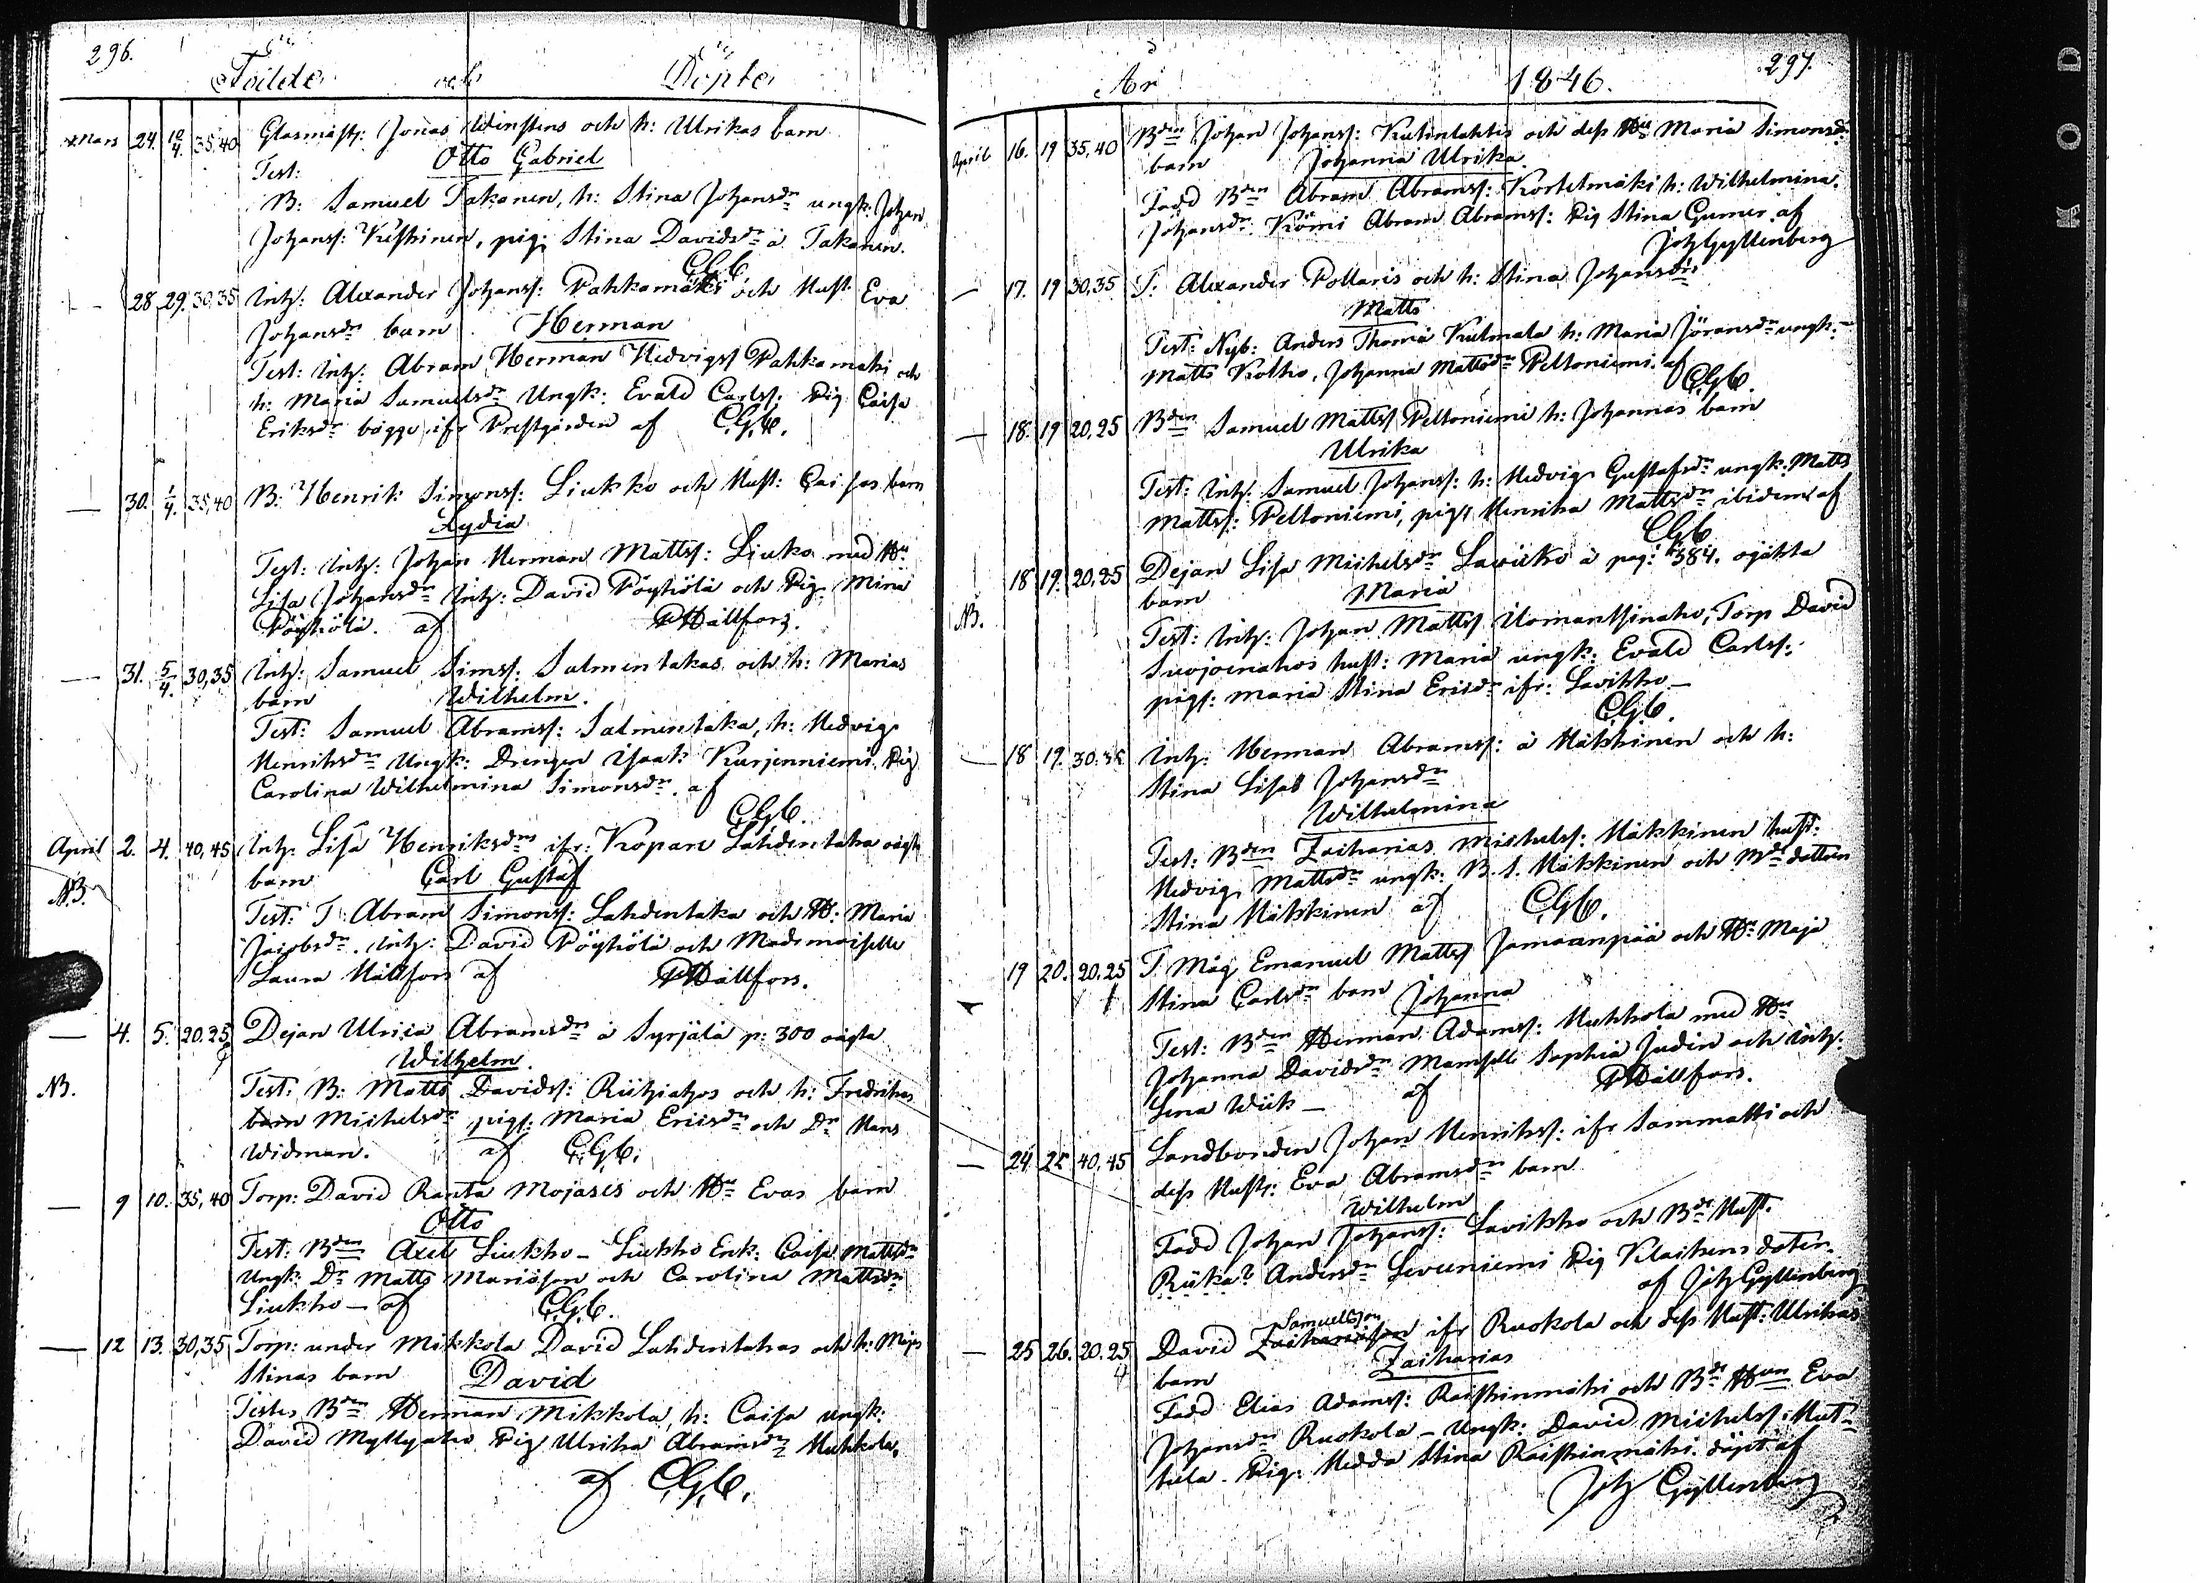 296.
Födde och Döpte
Mars 24. 10/4. 35,40 Glasmäst: Jonas Winstens och h: Ulrikas barn
Otto Gabriel
Test:
B: Samuel Takanen, h: Stina Johansdr ungk: Johan
Johanss: Keskinen, pig: Stina Davidsdr å Takanen.
C.G.C.
28 29. 30,35 Inh: Alexander Johanss: Pahkamäki och Hust. Eva
Johansdr barn Herman
Test: Inh: Abram Herman Hedvigss Pahkamäki och
h: Maria Samuelsdr Ungk: Evald Carlss: Pig Caisa
Eriksdr bägge ifr Prestgården af C.G.C.
30. 1/4. 35,40 B: Henrik Simonss: Liukko och Hust: Caisas barn
Lydia
Test: Inh: Johan Herman Mattss: Liuko med Hu
Lisa Johansdr Inh: David Pöyhölä och Pig: Mina
Pöyhölä. af PHällfors.
31. 5/4. 30,35 Inh: Samuel Simss: Salmentakas och h: Marias
barn Wilhelm.
Test: Samuel Abramss: Salmentaka, h: Hedvig
Henriksdr Ungk: Drengen Isaak Kurjenniemi Pig
Carolina Wilhelmina Simonsdr. af
C.G.C.
April 2. 4. 40,45 Inh. Lisa Henriksdrs ifr: Kopare Lahdentaka oägta
N.B. barn Carl Gustaf
Test: T: Abram Simonss: Lahdentaka och H: Maria
Jacobsdr. Inh: David Pöyhölä och Mademoiselle
Laura Hällfors af PHällfors.
4. 5. 20,25 Dejan Ulrica Abramsdr å Syrjälä p: 300 oägta
Wilhelm.
NB. Test: B: Matts Davidss: Riihiahos och h: Fredrikas
barn Michelsdr pigs: Maria Ericsdr och Dr Hans
Widman. af C.G.C.
9 10. 35,40 Torp: David Ranta Mojasis och Hu Evas barn
Otto
Test: Bden Axel Liukko – Liukko Enk: Caisa Mattsdr
Ungk: Dr Matts Mariäson och Carolina Mattsdr
Liukko – af C.G.C.
12 13. 30,35 Torp: under Mikkola David Lahdentakas och h: Majas
Stinas barn David
Testes Bden Herman Mikkola, h: Caisa ungk:
David Myllyaho Pig Ulrika Abramsdr Huhkola,
af C.G.C.
År 1846. 297.
April 16. 19 35,40 Bden Johan Johanss: Kutinlahtis och dess Hu Maria Simonsdr
barn Johanna Ulrika
Fadd Bden Abram Abramss: Kortetmäki h: Wilhelmina
Johansdr Römi Abram Abramss: Pig Stina Gumer af
Joh Gyllenberg
17. 19 30,35 T: Alexander Pollaris och h: Stina Johansdrs
Matts
Test: Nyb: Anders Thomä Kulmala h: Maria Jöransdr ungk:
Matts Kotho, Johanna Mattsdr Peltoniemi. af
C.G.C.
18. 19 20,25 Bden Samuel Mattss Peltoniemi h: Johannas barn
Ulrika
Test: Inh: Samuel Johanss: h: Hedvig Gustafsdr ungk: Matts
Mattss: Peltoniemi, pigs Henrika Mattsdr ibidem af
C.G.C.
18 19. 20,25 Dejan Lisa Michelsdr Lavikko å pag: 384. oäkta
barn Maria
NB. Test: Inh: Johan Mattss Uomantsinaho, Torp David
Suojoenahos hust: Maria ungk: Evald Carlss:
pigs: Maria Stina Ericsdr ifr: Lavikko –
C.G.C.
18 19. 30.35 Inh: Herman Abramss: å Häkkinen och h:
Stina Lisas Johansdr
Wilhelmina
Test: Bden Zacharias Michelss: Häkkinen hust:
Hedvig Mattsdr ungk: B. S. Häkkinen och Bde dottren
Stina Häkkinen af C.G.C.
19 20. 20.25 T. Måg Emanuel Mattss Jamaanpää och Hu Maja
Stina Carlsdr barn Johanna
Test: Bden Herman Adamss: Huhkola med Hu
Johanna Davidsdr Mamsell Sophia Judin och Inh:
Lena Wiik – af PHällfors.
24. 25 40,45 Landbonden Johan Henrikss: ifr Sammatti och
dess Hust: Eva Abramsdr barn
Wilhelm
Fadd Johan Johanss: Lavikko och Bde Hust.
Riika? Andersdr Leveniemi Pig Klaikens doter.
af Joh Gyllenberg
Samuelsson
25 26. 20.25 David Zachariäson ifr Ruokola och dess Hust: Ulrikas
barn Zacharias
Fadd Elias Adamss: Raiskinmäki och Bde Hun Eva
Johansdr Ruokola – Ungk: David Michelss: Hut-
tula. Pig: Hedda Stina Raiskinmäki. döpt af
Joh Gyllenberg
KOD